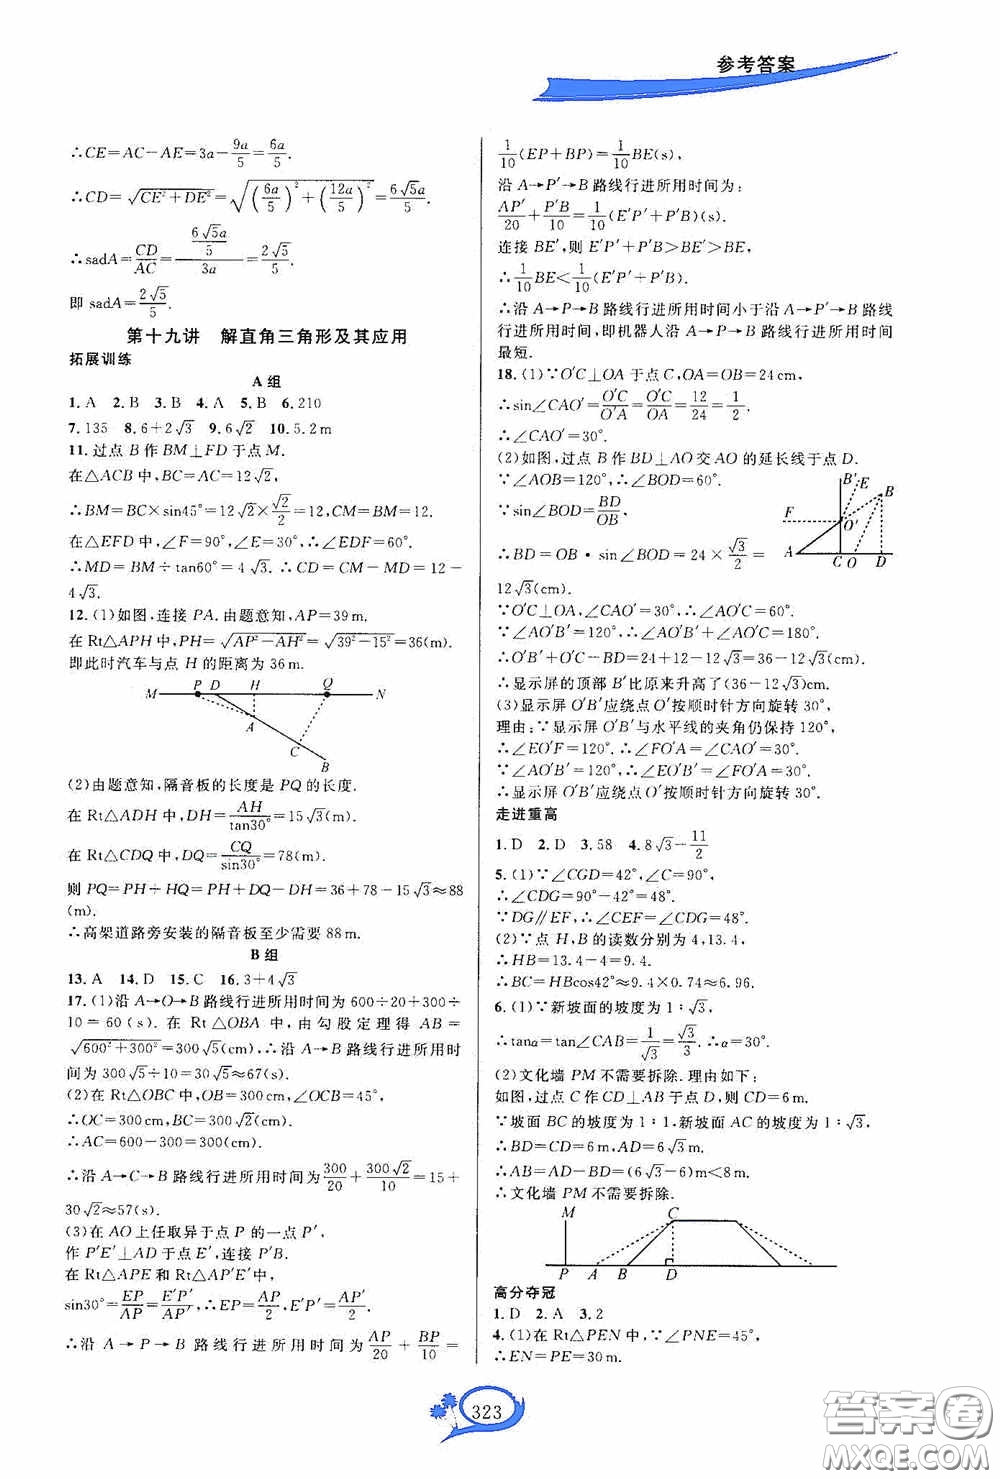 参考答案
∴CE=AC-AE=3a-9a/5=6a/5.
∴CD=√(CE²+DE²)=√((6a/5)²+(12a/5)²)=6√5a/5.
∴sadA=CD/AC=(6√5a/5)/3a=2√5/5.
即 sadA=2√5/5.
第十九讲 解直角三角形及其应用
拓展训练
A 组
1. A 2. B 3. B 4. A 5. B 6. 210
7. 135 8. 6+2√3 9. 6√2 10. 5.2 m
11. 过点 B 作 BM⊥FD 于点 M.
在△ACB 中,BC=AC=12√2.
∴BM=BC×sin45°=12√2×√2/2=12,CM=BM=12.
在△EFD 中,∠F=90°,∠E=30°,∴∠EDF=60°.
∴MD=BM÷tan60°=4√3. ∴CD=CM-MD=12-
4√3.
12. (1)如图,连接 PA. 由题意知,AP=39 m.
在 Rt△APH 中,PH=√(AP²-AH²)=√(39²-15²)=36(m)
即此时汽车与点 H 的距离为 36 m.
M P D H Q N
A
C
B
(2)由题意知,隔音板的长度是 PQ 的长度.
在 Rt△ADH 中,DH=AH/tan30°=15√3(m).
在 Rt△CDQ 中,DQ=CQ/sin30°=78(m).
则 PQ=PH+HQ=PH+DQ-DH=36+78-15√3≈88
(m).
∴高架道路旁安装的隔音板至少需要 88 m.
B 组
13. A 14. D 15. C 16. 3+4√3
17. (1)沿 A→O→B 路线行进所用时间为 600÷20+300÷
10 = 60 (s). 在 Rt△OBA 中,由勾股定理得 AB =
√(600²+300²)=300√5(cm),∴沿 A→B 路线行进所用时
间为 300√5÷10=30√5≈67(s).
(2)在 Rt△OBC 中,OB=300 cm,∠OCB=45°,
∴OC=300 cm,BC=300√2(cm).
∴AC=600-300=300(cm).
∴沿 A→C→B 路线行进所用时间为300/20+300√2/10=15+
30√2≈57(s).
(3)在 AO 上任取异于点 P 的一点 P′,
作 P′E′⊥AD 于点 E′,连接 P′B.
在 Rt△APE 和 Rt△AP′E′中,
sin30°=EP/AP=E′P′/AP′,∴EP=AP/2,E′P′=AP′/2.
∴沿 A→P→B 路线行进所用时间为AP/20+BP/10=
1/10(EP+BP)=1/10BE(s),
沿 A→P′→B 路线行进所用时间为:
AP′/20+P′B/10=1/10(E′P′+P′B)(s).
连接 BE′,则 E′P′+P′B>BE′>BE,
∴1/10BE<1/10(E′P′+P′B).
∴沿 A→P→B 路线行进所用时间小于沿 A→P′→B 路线
行进所用时间,即机器人沿 A→P→B 路线行进所用时间
最短.
18. (1)∵O′C⊥OA 于点 C,OA=OB=24 cm,
∴sin∠CAO′=O′C/O′A=O′C/OA=12/24=1/2.
∴∠CAO′=30°.
(2)如图,过点 B 作 BD⊥AO 交 AO 的延长线于点 D.
∵∠AOB=120°,∴∠BOD=60°.
∵sin∠BOD=BD/OB,
∴BD=OB·sin∠BOD=24×√3/2=
12√3(cm).
B′ E B
F O′
A C O D
∵O′C⊥OA,∠CAO′=30°,∴∠AO′C=60°.
∵∠AO′B′=120°,∴∠AO′B′+∠AO′C=180°.
∴O′B′+O′C-BD=24+12-12√3=36-12√3(cm).
∴显示屏的顶部 B′比原来升高了(36-12√3)cm.
(3)显示屏 O′B′应绕点 O′按顺时针方向旋转 30°.
理由:∵显示屏 O′B′与水平线的夹角仍保持 120°,
∴∠EO′F=120°. ∴∠FO′A=∠CAO′=30°.
∵∠AO′B′=120°,∴∠EO′B′=∠FO′A=30°.
∴显示屏 O′B′应绕点 O′按顺时针方向旋转 30°.
走进重高
1. D 2. D 3. 58 4. 8√3-11/2
5. (1)∵∠CGD=42°,∠C=90°,
∴∠CDG=90°-42°=48°.
∵DG∥EF,∴∠CEF=∠CDG=48°.
(2)∵点 H,B 的读数分别为 4,13.4,
∴HB=13.4-4=9.4.
∴BC=HBcos42°≈9.4×0.74≈6.96.
6. (1)∵新坡面的坡度为 1∶√3,
∴tanα=tan∠CAB=1/√3=√3/3. ∴α=30°.
(2)文化墙 PM 不需要拆除. 理由如下:
如图,过点 C 作 CD⊥AB 于点 D,则 CD=6 m.
∵坡面 BC 的坡度为 1∶1,新坡面 AC 的坡度为 1∶√3,
∴BD=CD=6 m,AD=6√3 m.
∴AB=AD-BD=(6√3-6)m<8 m.
∴文化墙 PM 不需要拆除.
M C
P A B D
高分夺冠
1. D 2. A 3. 2
4. (1)在 Rt△PEN 中,∵∠PNE=45°,
∴EN=PE=30 m.
323
答案圈
MXQE.COM